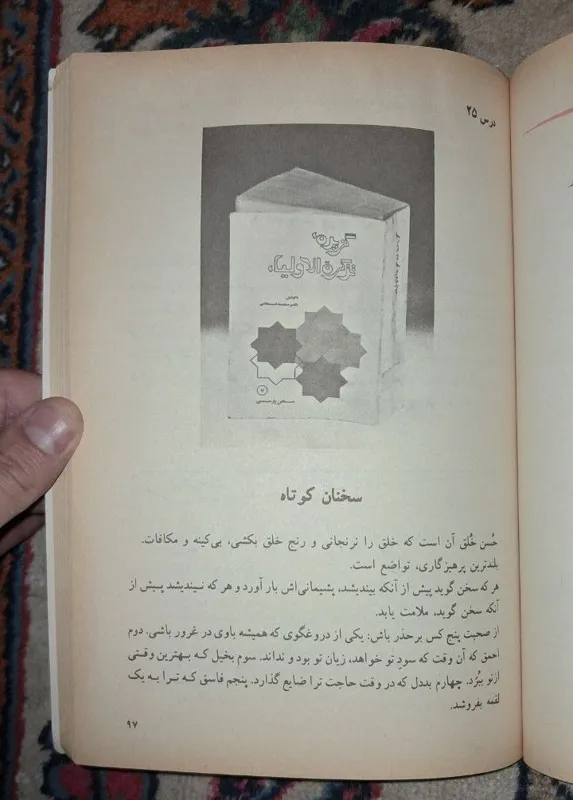 درس ۲۵
گزیدهٔ
تذکرة الاولیاء
سخن پارسی
۷
سخنان کوتاه
حُسن خُلق آن است که خلق را نرنجانی و رنج خلق بکشی، بی‌کینه و مکافات.
بلندترین پرهیزگاری، تواضع است.
هر که سخن گوید پیش از آنکه بیندیشد، پشیمانی‌اش بار آورد و هر که نیندیشد پیش از
آنکه سخن گوید، ملامت یابد.
از صحبت پنج کس برحذر باش: یکی از دروغگوی که همیشه باوی در غرور باشی. دوم
احمق که آن وقت که سودِ تو خواهد، زیان تو بود و نداند. سوم بخیل که بهترین وقتی
ازتو ببُرّد. چهارم بددل که در وقت حاجت ترا ضایع گذارد. پنجم فاسق که ترا به یک
لقمه بفروشد.
۹۷